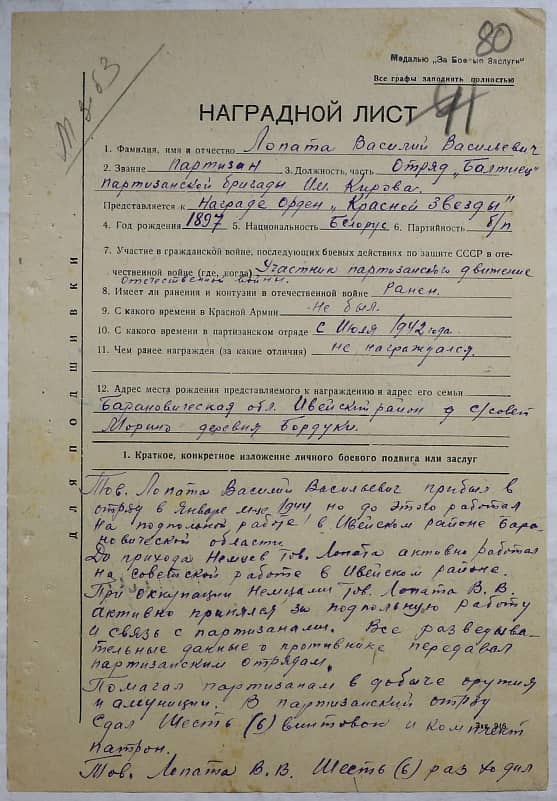 80
Медалью „За Боевые Заслуги“
Все графы заполнять полностью
НАГРАДНОЙ ЛИСТ 41
1. Фамилия, имя и отчество Лопата Василий Васильевич
2. Звание партизан 3. Должность, часть Отряд „Балтиец“
партизанской бригады Им. Кирова.
Представляется к Награде Орден „Красной Звезды“
4. Год рождения 1897 5. Национальность Белорус 6. Партийность б/п
7. Участие в гражданской войне, последующих боевых действиях по защите СССР в оте-
чественной войне (где, когда) Участник партизанского движение
Отечественной войны.
8. Имеет ли ранения и контузии в отечественной войне Ранен.
9. С какого времени в Красной Армии Не был.
10. С какого времени в партизанском отряде с Июля 1942 года.
11. Чем ранее награжден (за какие отличия) не награждался.
12. Адрес места рождения представляемого к награждению и адрес его семьи
Барановическая обл. Ивейский район с/совет
Морино деревня Бордуки.
ДЛЯ ПОДШИВКИ
1. Краткое, конкретное изложение личного боевого подвига или заслуг
Тов. Лопата Василий Васильевич прибыл в
отряд в Январе м-це 1944 но до этого работал
на подпольной работе в Ивейском районе Бара-
новической области
До прихода Немцев тов. Лопата активно работал
на советской работе в Ивейском районе.
При оккупации Немцами тов. Лопата В. В.
активно принялся за подпольную работу
и связь с партизанами. Все разведыва-
тельные данные о противнике передавал
партизанским отрядам.
Помагал партизанам в добыче оружия
и амуниции. В партизанский отряд
сдал Шесть (6) винтовок и комплект
патрон.
Тов. Лопата В. В. Шесть (6) раз ходил